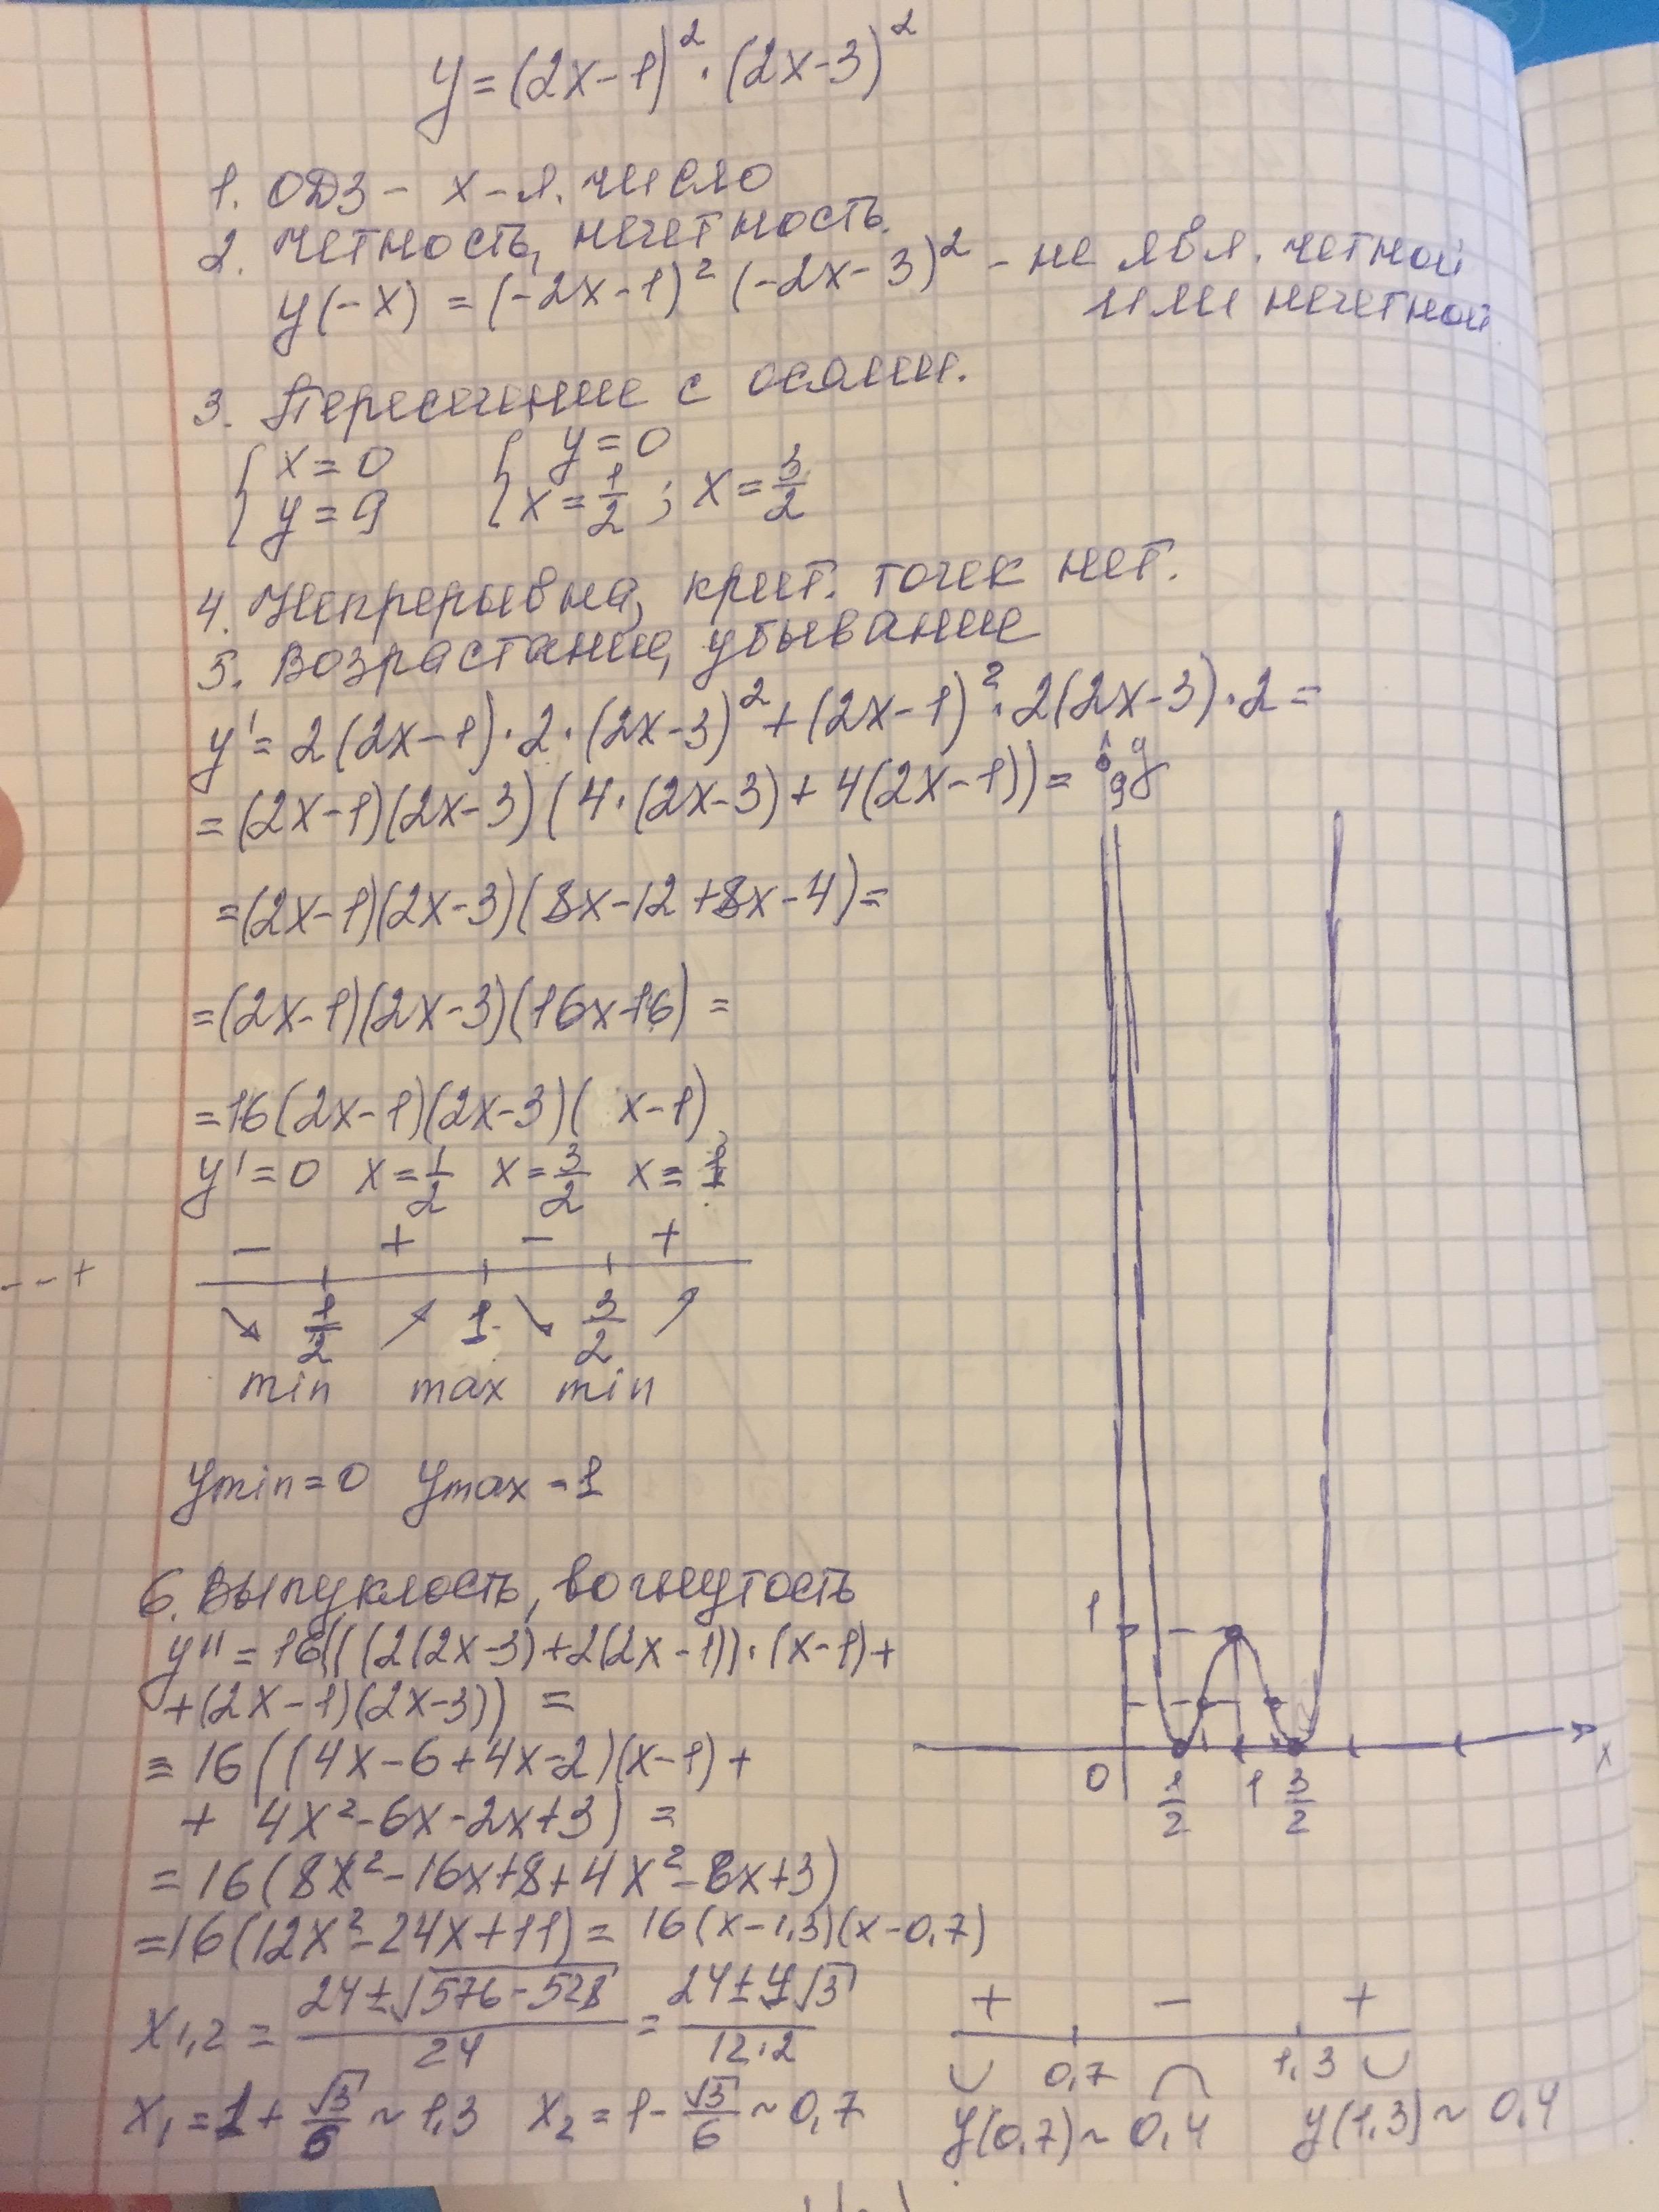 y = (2x-1)² · (2x-3)²
1. ОДЗ - x - л. число
2. Четность, нечетность.
y(-x) = (-2x-1)² (-2x-3)² - не явл. четной
или нечетной
3. Пересечение с осями.
{ x = 0 { y = 0
{ y = 9 { x = 1/2 ; x = 3/2
4. Непрерывна, крит. точек нет.
5. Возрастание, убывание
y' = 2(2x-1)·2·(2x-3)² + (2x-1)²·2(2x-3)·2 =
= (2x-1)(2x-3)(4·(2x-3) + 4(2x-1)) =
= (2x-1)(2x-3)(8x-12+8x-4) =
= (2x-1)(2x-3)(16x-16) =
= 16(2x-1)(2x-3)( x-1)
y' = 0 x = 1/2 x = 3/2 x = 1
- + - +
- - +
↘ 1/2 ↗ 1 ↘ 3/2 ↗
min max min
ymin = 0 ymax = 1
6. Выпуклость, вогнутость
y'' = 16(((2(2x-3)+2(2x-1))·(x-1)+
+(2x-1)(2x-3)) =
= 16((4x-6+4x-2)(x-1)+
+ 4x²-6x-2x+3) =
= 16(8x²-16x+8+4x²-8x+3)
= 16(12x²-24x+11) = 16(x-1,3)(x-0,7)
x1,2 = (24±√(576-528))/24 = (24±4√3)/(12·2)
x1 = 1 + √3/6 ~ 1,3 x2 = 1 - √3/6 ~ 0,7
9 y
1
0 1/2 1 3/2 x
+ - +
∪ 0,7 ∩ 1,3 ∪
y(0,7) ~ 0,4 y(1,3) ~ 0,4